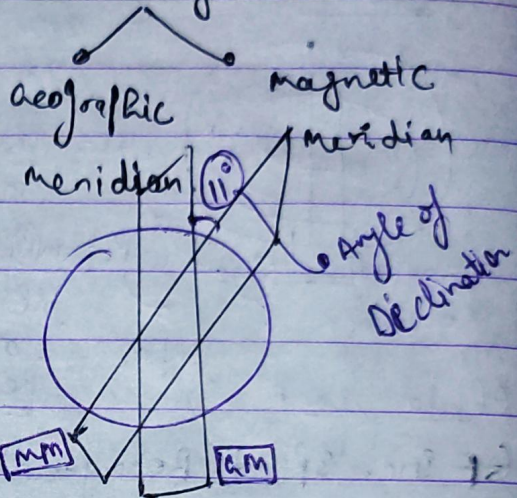 Geographic
Meridian
Magnetic
Meridian
11°
Angle of
Declination
MM
GM